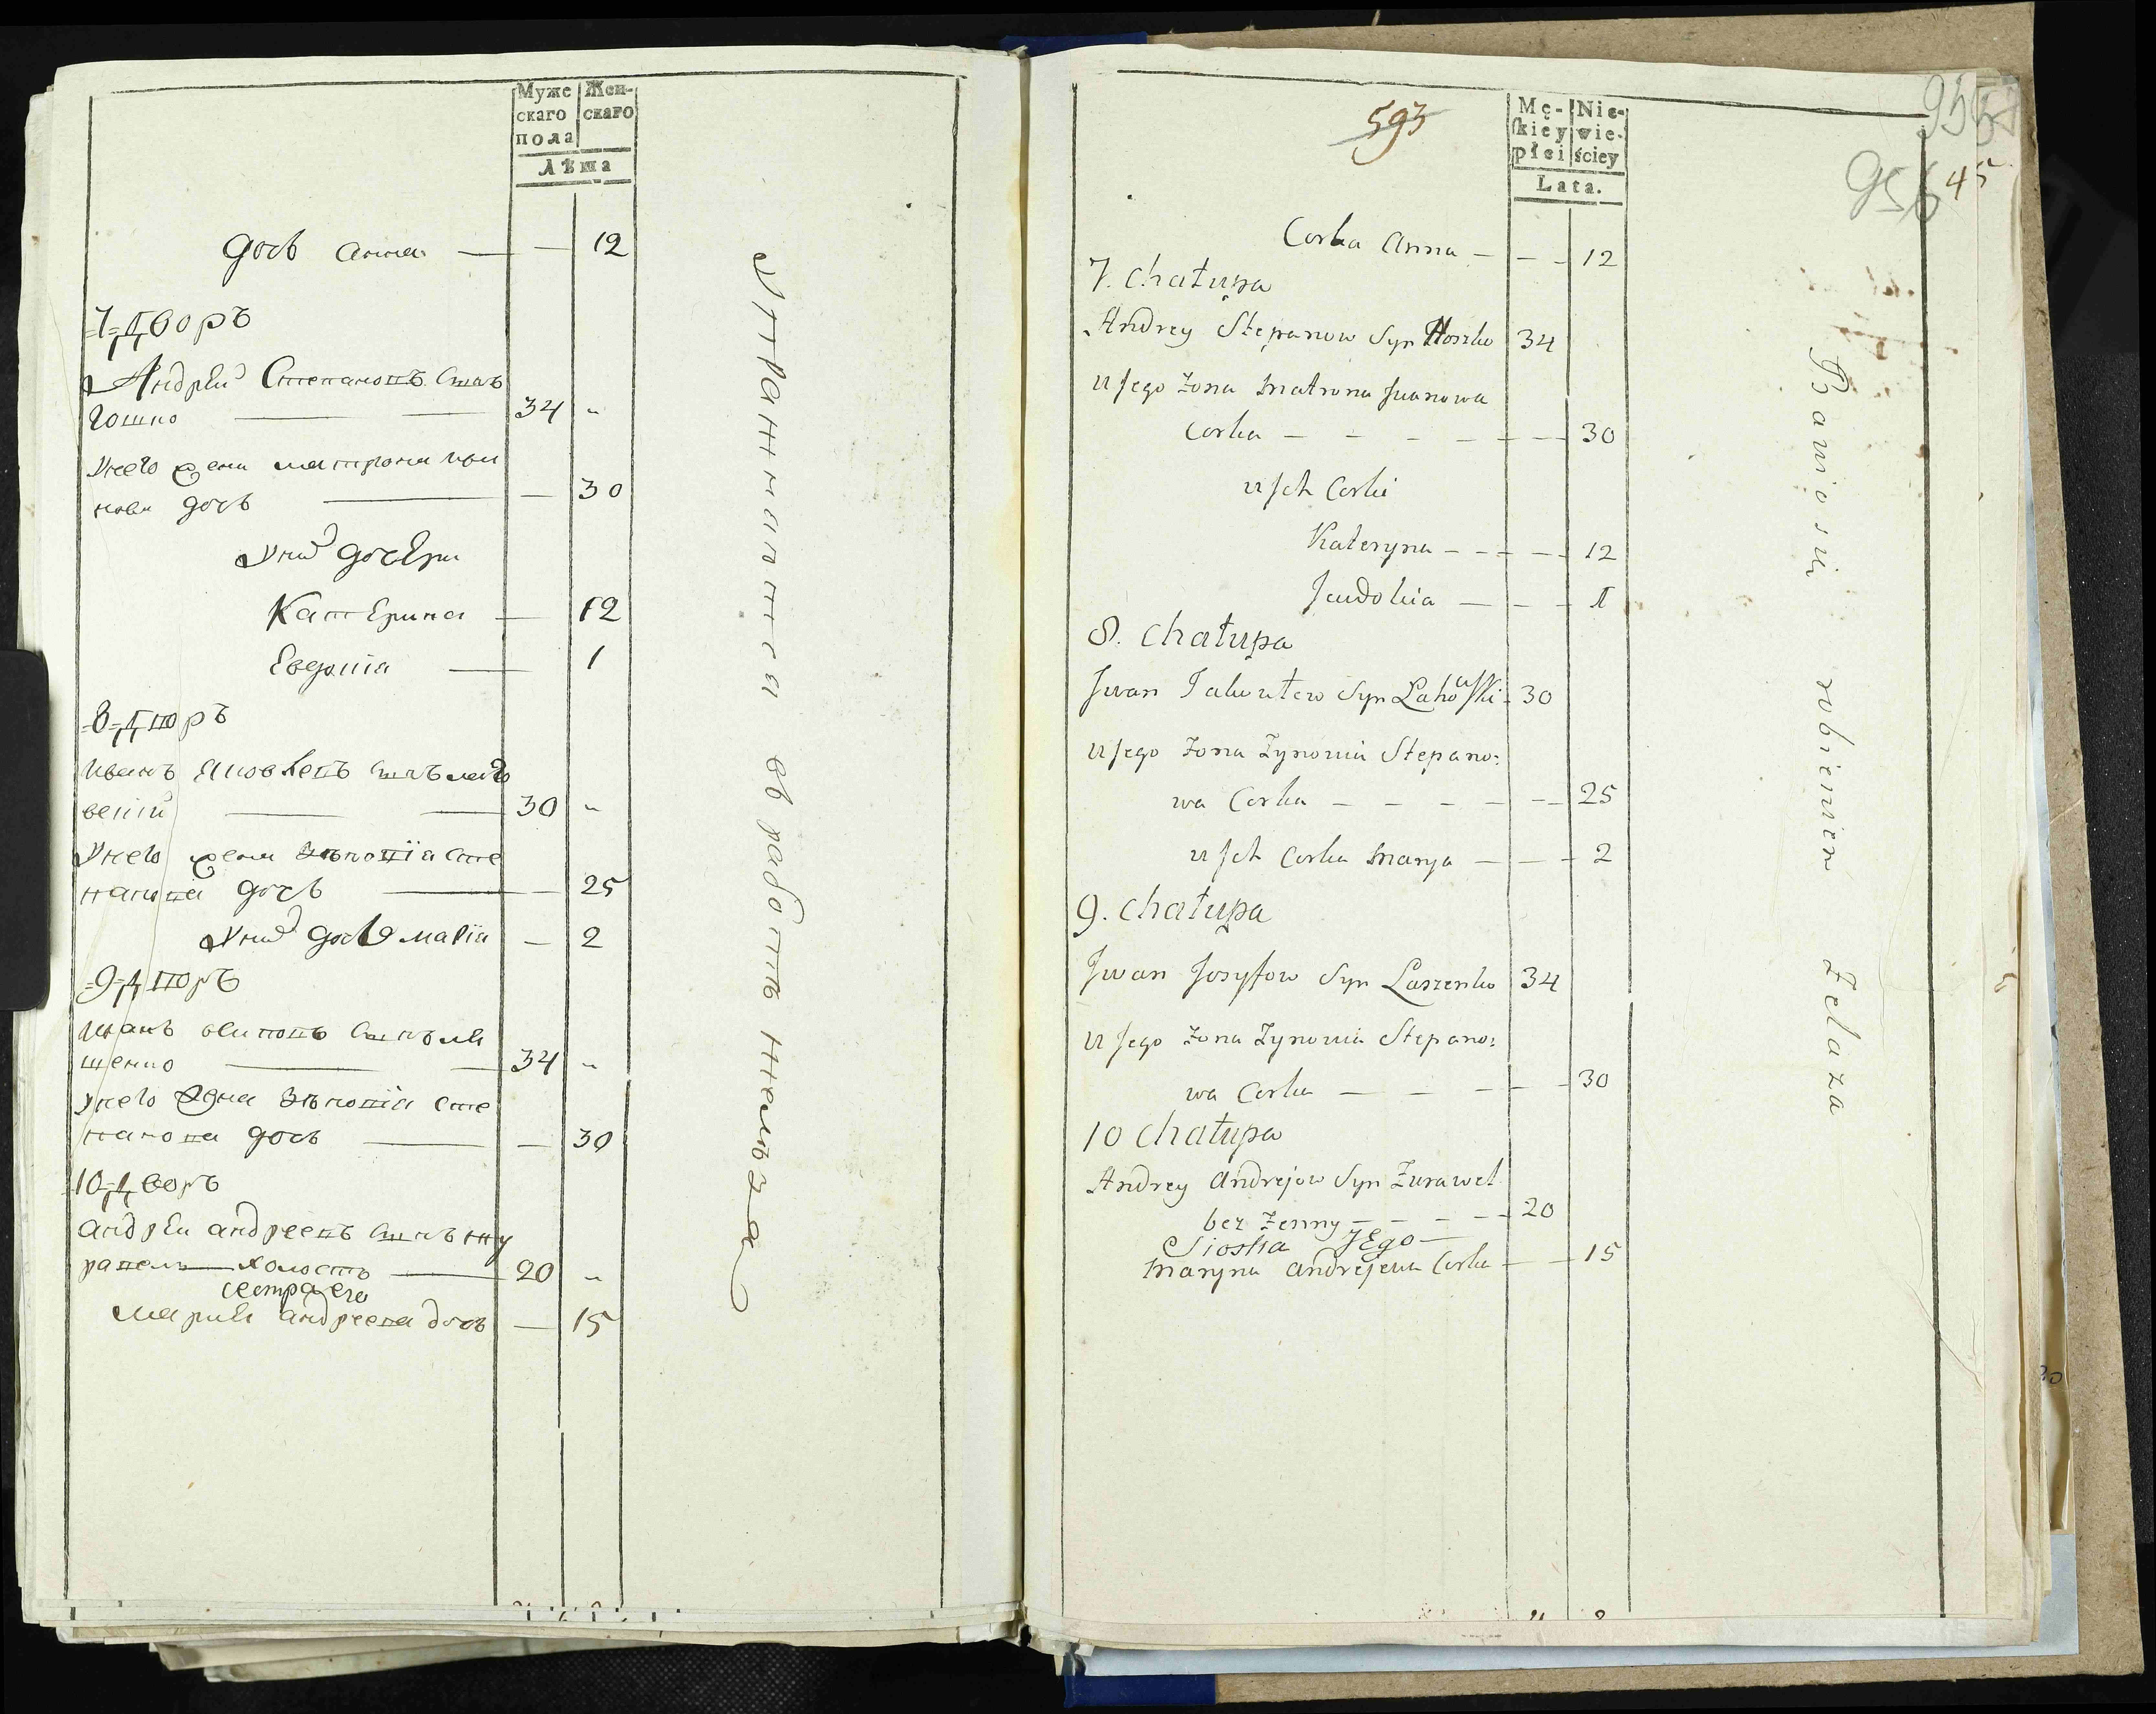 Муже Жен-
скаго скаго
пола
Лѣта
дочь анна — — 12
7 дворъ
Андрей Степановъ Сынъ
Гошко — — 34 "
Унего жена матрона ива
нова дочь — — 30
Унихъ дочери
Катерина — 12
Евдокіа — 1
8 дворъ
иванъ яковлевъ сынъ лаго
вскій — — 30 "
Унего жена зѣновіа сте
панова дочь — — 25
Унихъ дочь маріа — 2
9 дворъ
иванъ осиповъ сынъ ля
щенко — — 34 "
унего жена зѣновіа сте
панова дочь — — 30
10 дворъ
андрей андреевъ сынъ жу
равель — холостъ — 20 "
сестра его
марина андреева дочь — 15
Упражняются въ работѣ желѣза
593
Mę- Nie-
skiey wie-
płci ściey
Lata.
955
956 45
Corka Anna — — — 12
7. Chałupa
Andrey Stepanow Syn Hoszko 34
u jego Zona Matrona Iwanowa
Corka — — — — — 30
u ich Corki
Kateryna — — — — 12
Jewdokia — — — 1
8. Chałupa
Jwan Jakowlew Syn Lahowski 30
u jego Zona Zynowia Stepano:
wa Corka — — — — — 25
u ich Corka Marya — — — 2
9. Chałupa
Jwan Josyfow Syn Laszenko 34
u jego Zona Zynowia Stepano:
wa Corka — — — — — 30
10 Chałupa
Andrey Andrejow Syn Zurawel
bez Zenny — — — — 20
Siostra Jego —
Maryna Andrejewa Corka — — 15
Bawio sie robieniem Zelaza